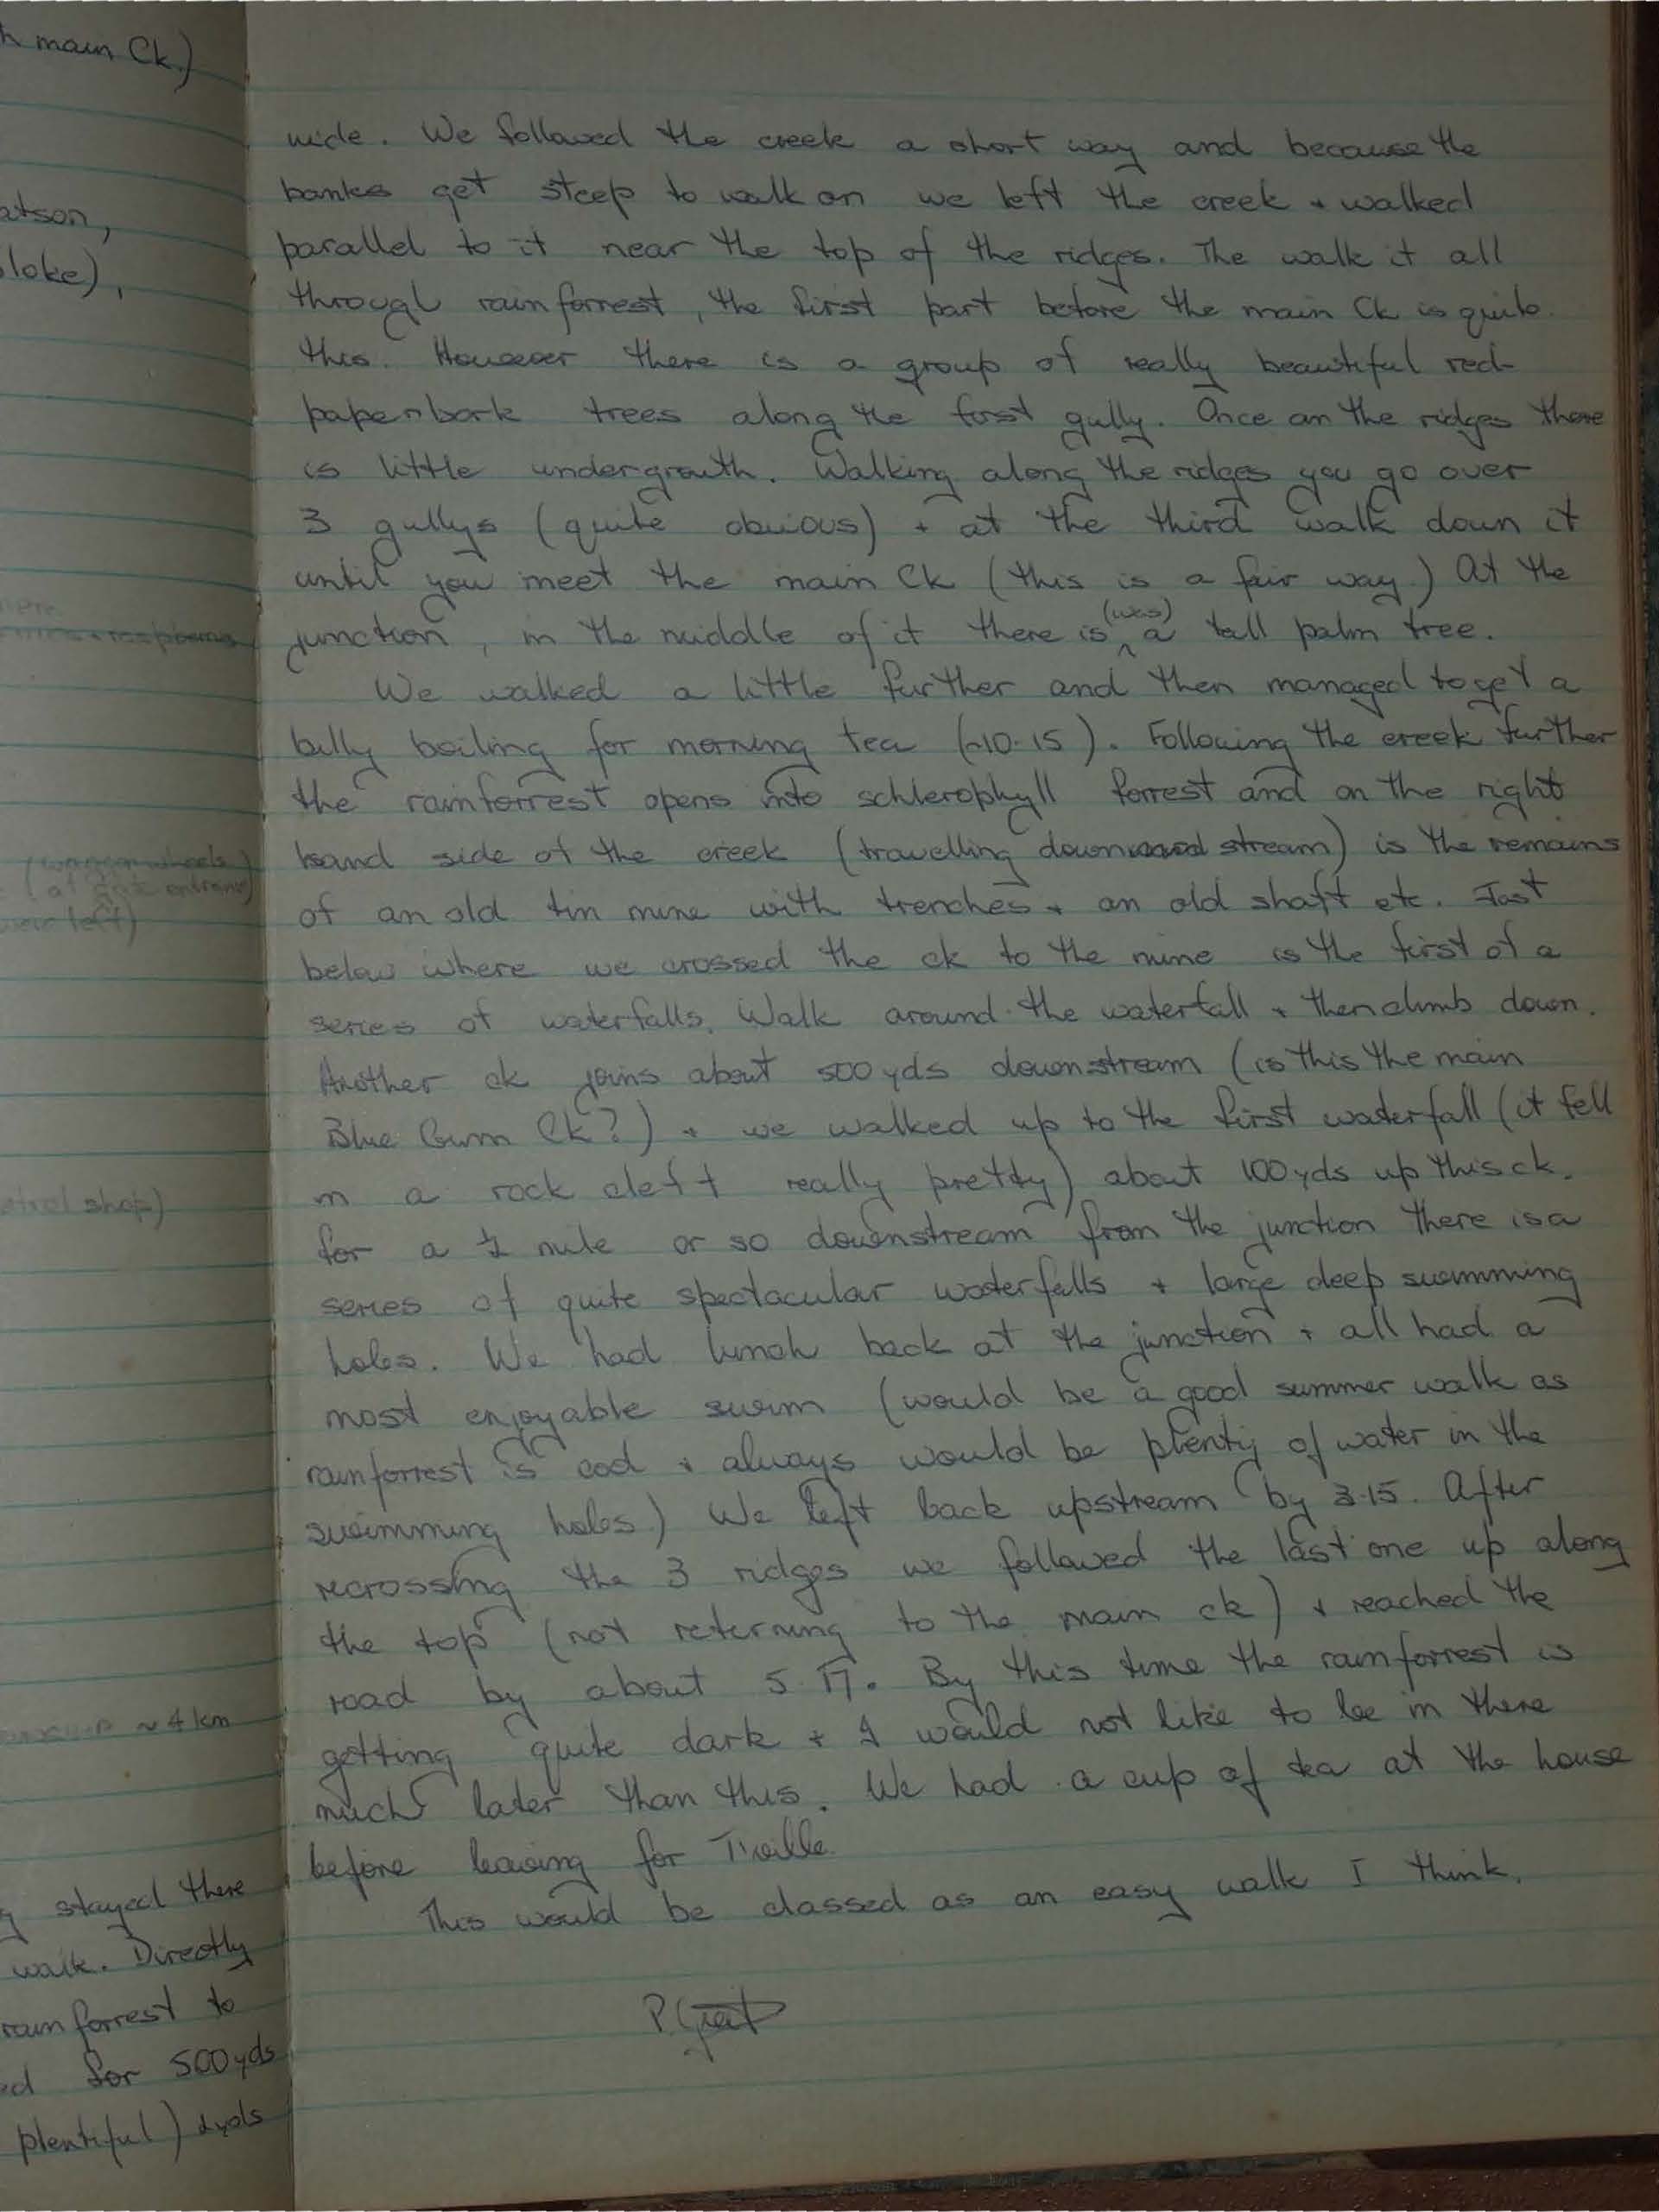 main Ck.)
atson,
loke),
(wagon wheels)
(at gate entrance)
near left)
shop)
~ 4 km
stayed there
walk. Directly
rainforrest to
ed for 500yds
plentiful) 2yds
wide. We followed the creek a short way and because the
banks get steep to walk on we left the creek + walked
parallel to it near the top of the ridges. The walk it all
through rainforrest, the first part before the main Ck is quite
this. However there is a group of really beautiful red-
paperbark trees along the first gully. Once on the ridges there
is little undergrowth. Walking along the ridges you go over
3 gullys (quite obvious) + at the third walk down it
until you meet the main Ck (this is a fair way.) At the
junction, in the middle of it there is (was) a tall palm tree.
We walked a little further and then managed to get a
billy boiling for morning tea (~10.15). Following the creek further
the rainforrest opens into schlerophyll forrest and on the right
hand side of the creek (travelling down stream) is the remains
of an old tin mine with trenches + an old shaft etc. Just
below where we crossed the ck to the mine is the first of a
series of waterfalls. Walk around the waterfall + then climb down.
Another ck joins about 500 yds downstream (is this the main
Blue Gum Ck?) + we walked up to the first waterfall (it fell
in a rock cleft really pretty) about 100 yds up this ck.
for a ½ mile or so downstream from the junction there is a
series of quite spectacular waterfalls + large deep swimming
holes. We had lunch back at the junction + all had a
most enjoyable swim (would be a good summer walk as
rainforrest is cool + always would be plenty of water in the
swimming holes.) We left back upstream by 3.15. After
recrossing the 3 ridges we followed the last one up along
the top (not returning to the main ck) + reached the
road by about 5.17. By this time the rainforrest is
getting quite dark + I would not like to be in there
much later than this. We had a cup of tea at the house
before leaving for T'ville.
This would be classed as an easy walk I think.
P.